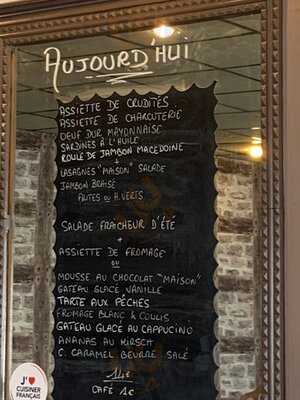 AUJOURD'HUI
ASSIETTE DE CRUDITÉS
ASSIETTE DE CHARCUTERIE
OEUF DUR MAYONNAISE
SARDINES À L'HUILE
ROULÉ DE JAMBON MACEDOINE
+
LASAGNES "MAISON" SALADE
JAMBON BRAISÉ
FRITES OU H. VERTS
SALADE FRAICHEUR D'ÉTÉ
+
ASSIETTE DE FROMAGE
OU
MOUSSE AU CHOCOLAT "MAISON"
GATEAU GLACÉ VANILLE
TARTE AUX PÊCHES
FROMAGE BLANC & COULIS
GATEAU GLACÉ AU CAPPUCINO
ANANAS AU KIRSCH
C. CARAMEL BEURRE SALÉ
14€
CAFÉ 1€
J'❤
CUISINER
FRANÇAIS